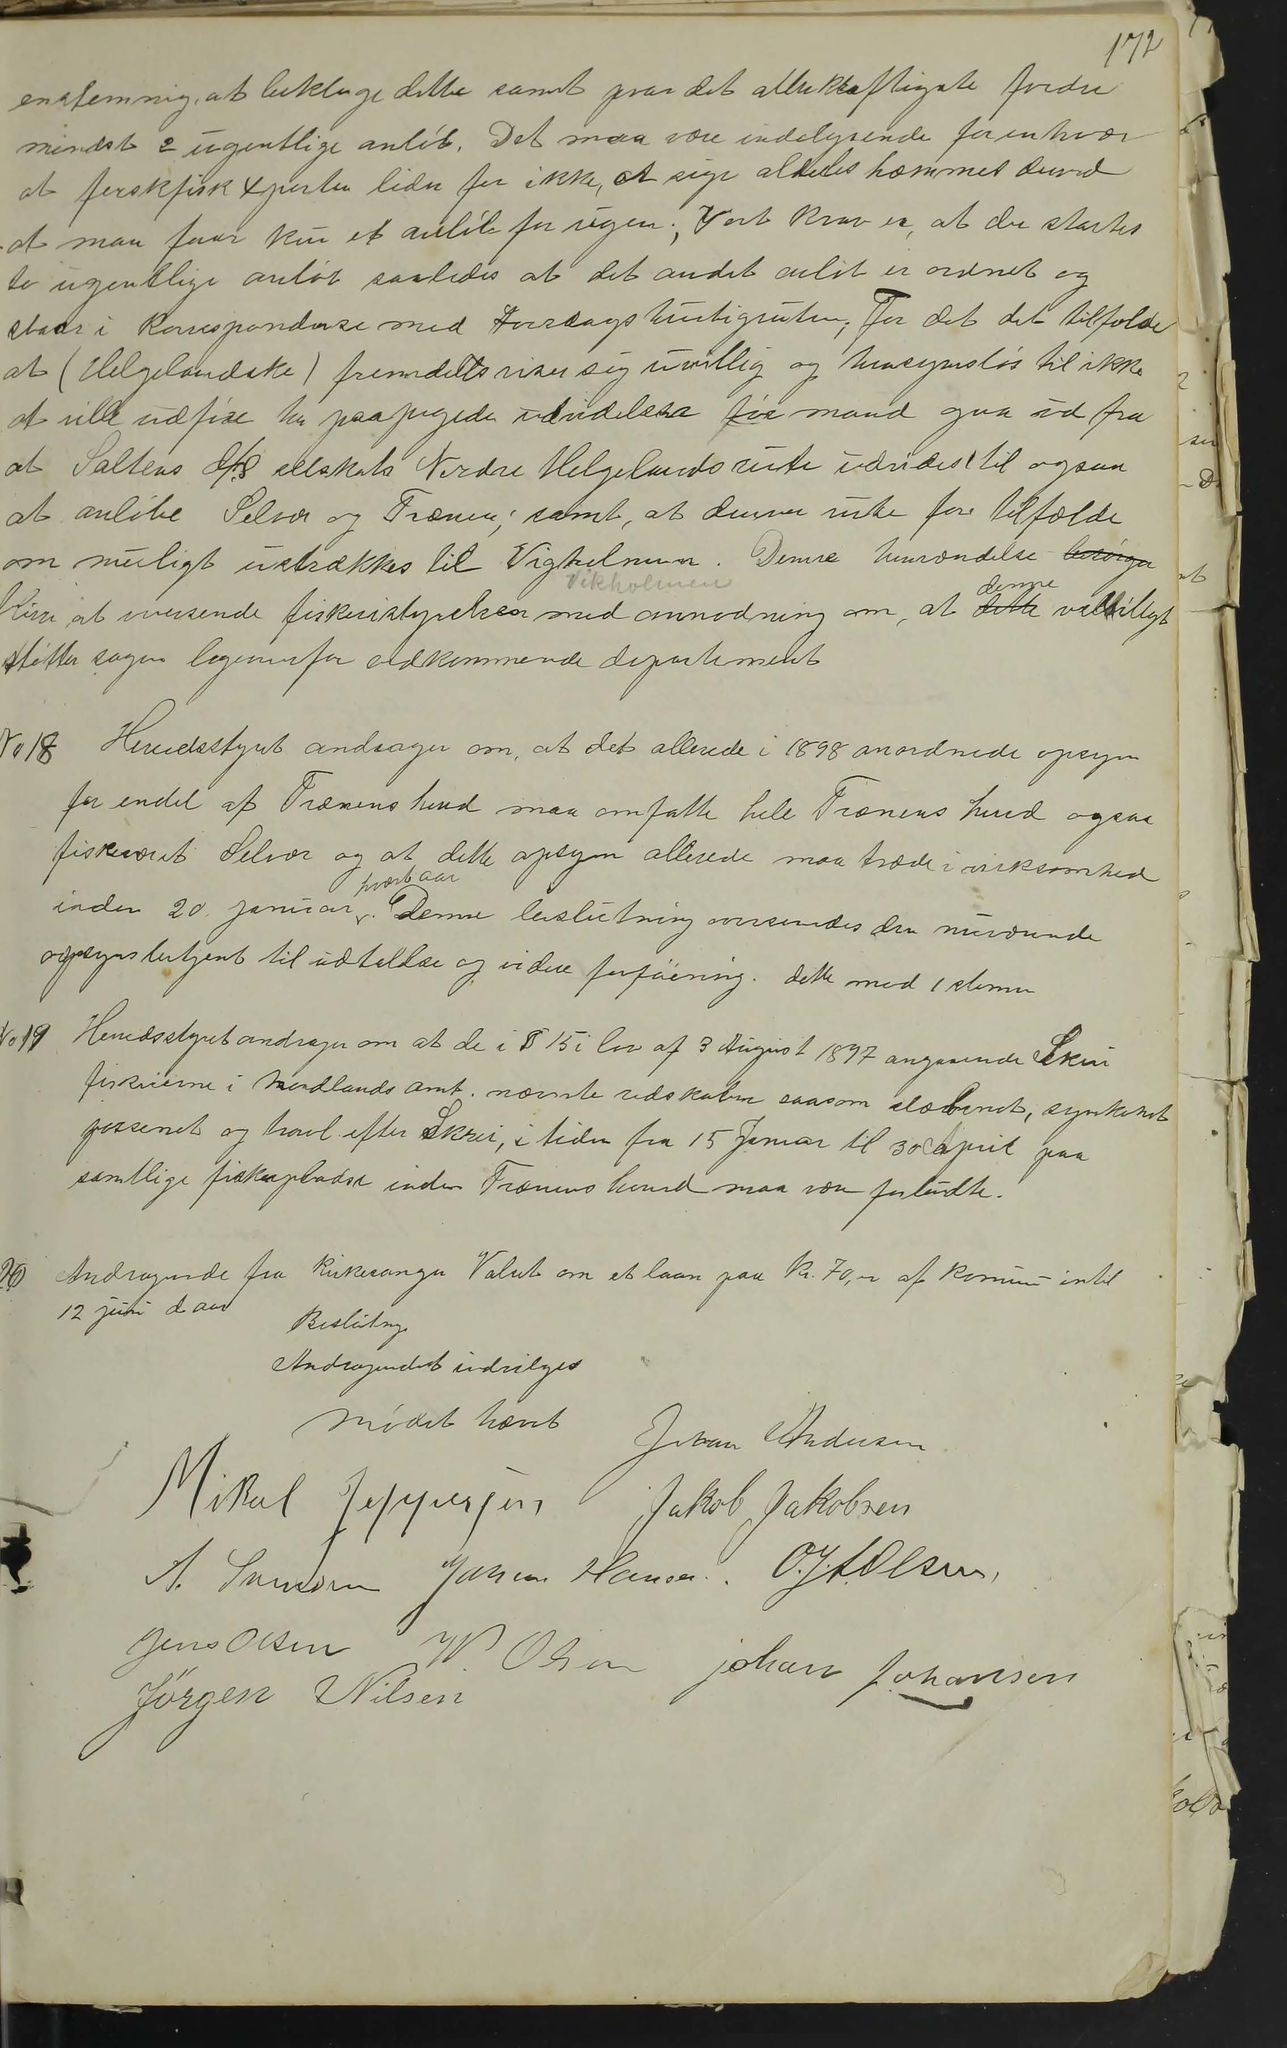 172
enstemmig, at beklage dette samt paa det allerkraftigste fordre
mindst 2 ugentlige anløb. Det maa være indelysende for enhver
at ferskfisk xporten lider for ikke, at sige aldeles hæmmes derved
at man faar kun et anløb for ugen; Vort krav er, at der startes
to ugentlige anløb saaledes at det andet anløb er ordnet og
staar i Korrespondense med Torsdags hurtigruten; For det det tilfælde
at (Helgelandske) fremdeles viser sig uvillig og hensynsløs til ikke
at ville udføre her paapegede udvidelser før mand gaa ud fra
at Saltens dfs selskabs Nordre Helgelands rute udvides til ogsaa
at anløbe Selvær og Trænen; samt, at denne rute for tilfælde
om muligt udstrækkes til Vigholmen. Denne henvendelse besørges
Vikholmen
denne
bliver at oversende fiskeristyrelsen med anmodning om, at dette velvilligt
støtter sagen ligeoverfor vedkommende departement
No 18 Herredsstyret andrager om, at det allerede i 1898 anordnede opsyn
for endel af Trænens herred maa omfatte hele Trænens herred ogsaa
fiskeværet Selvær og at dette opsyn allerede maa træde i virksomhed
hvert aar
inden 20 januar. Denne beslutning oversendes den nuværende
opsynsbetjent til udtalelse og videre forføiening. dette mod 1 stemme
No 19 Herredsstyret andrager om at de i § 15 i lov af 3 August 1897 angaaende Skrei
fiskerierne i Nordlands amt. nævnte redskaber saasom slæbenot, synkenot
posenot og troul efter Skrei, i tiden fra 15 Januar til 30 April paa
samtlige fiskepladse inden Trænens herred maa være forbudte.
20 Andragende fra kirkesanger Valset om et laan paa Kr. 70,00 af kommunen indtil
12 juni d aar
Beslutning
Andragendet indvilges
Mødet hævet
Johan Andersen
Mikal Jeppesen Jakob Jakobsen
A. Johan Hansen. O.J.A. Olsen,
Jens Olsen W. Olsen Johan Johansen
Jørgen Nilsen